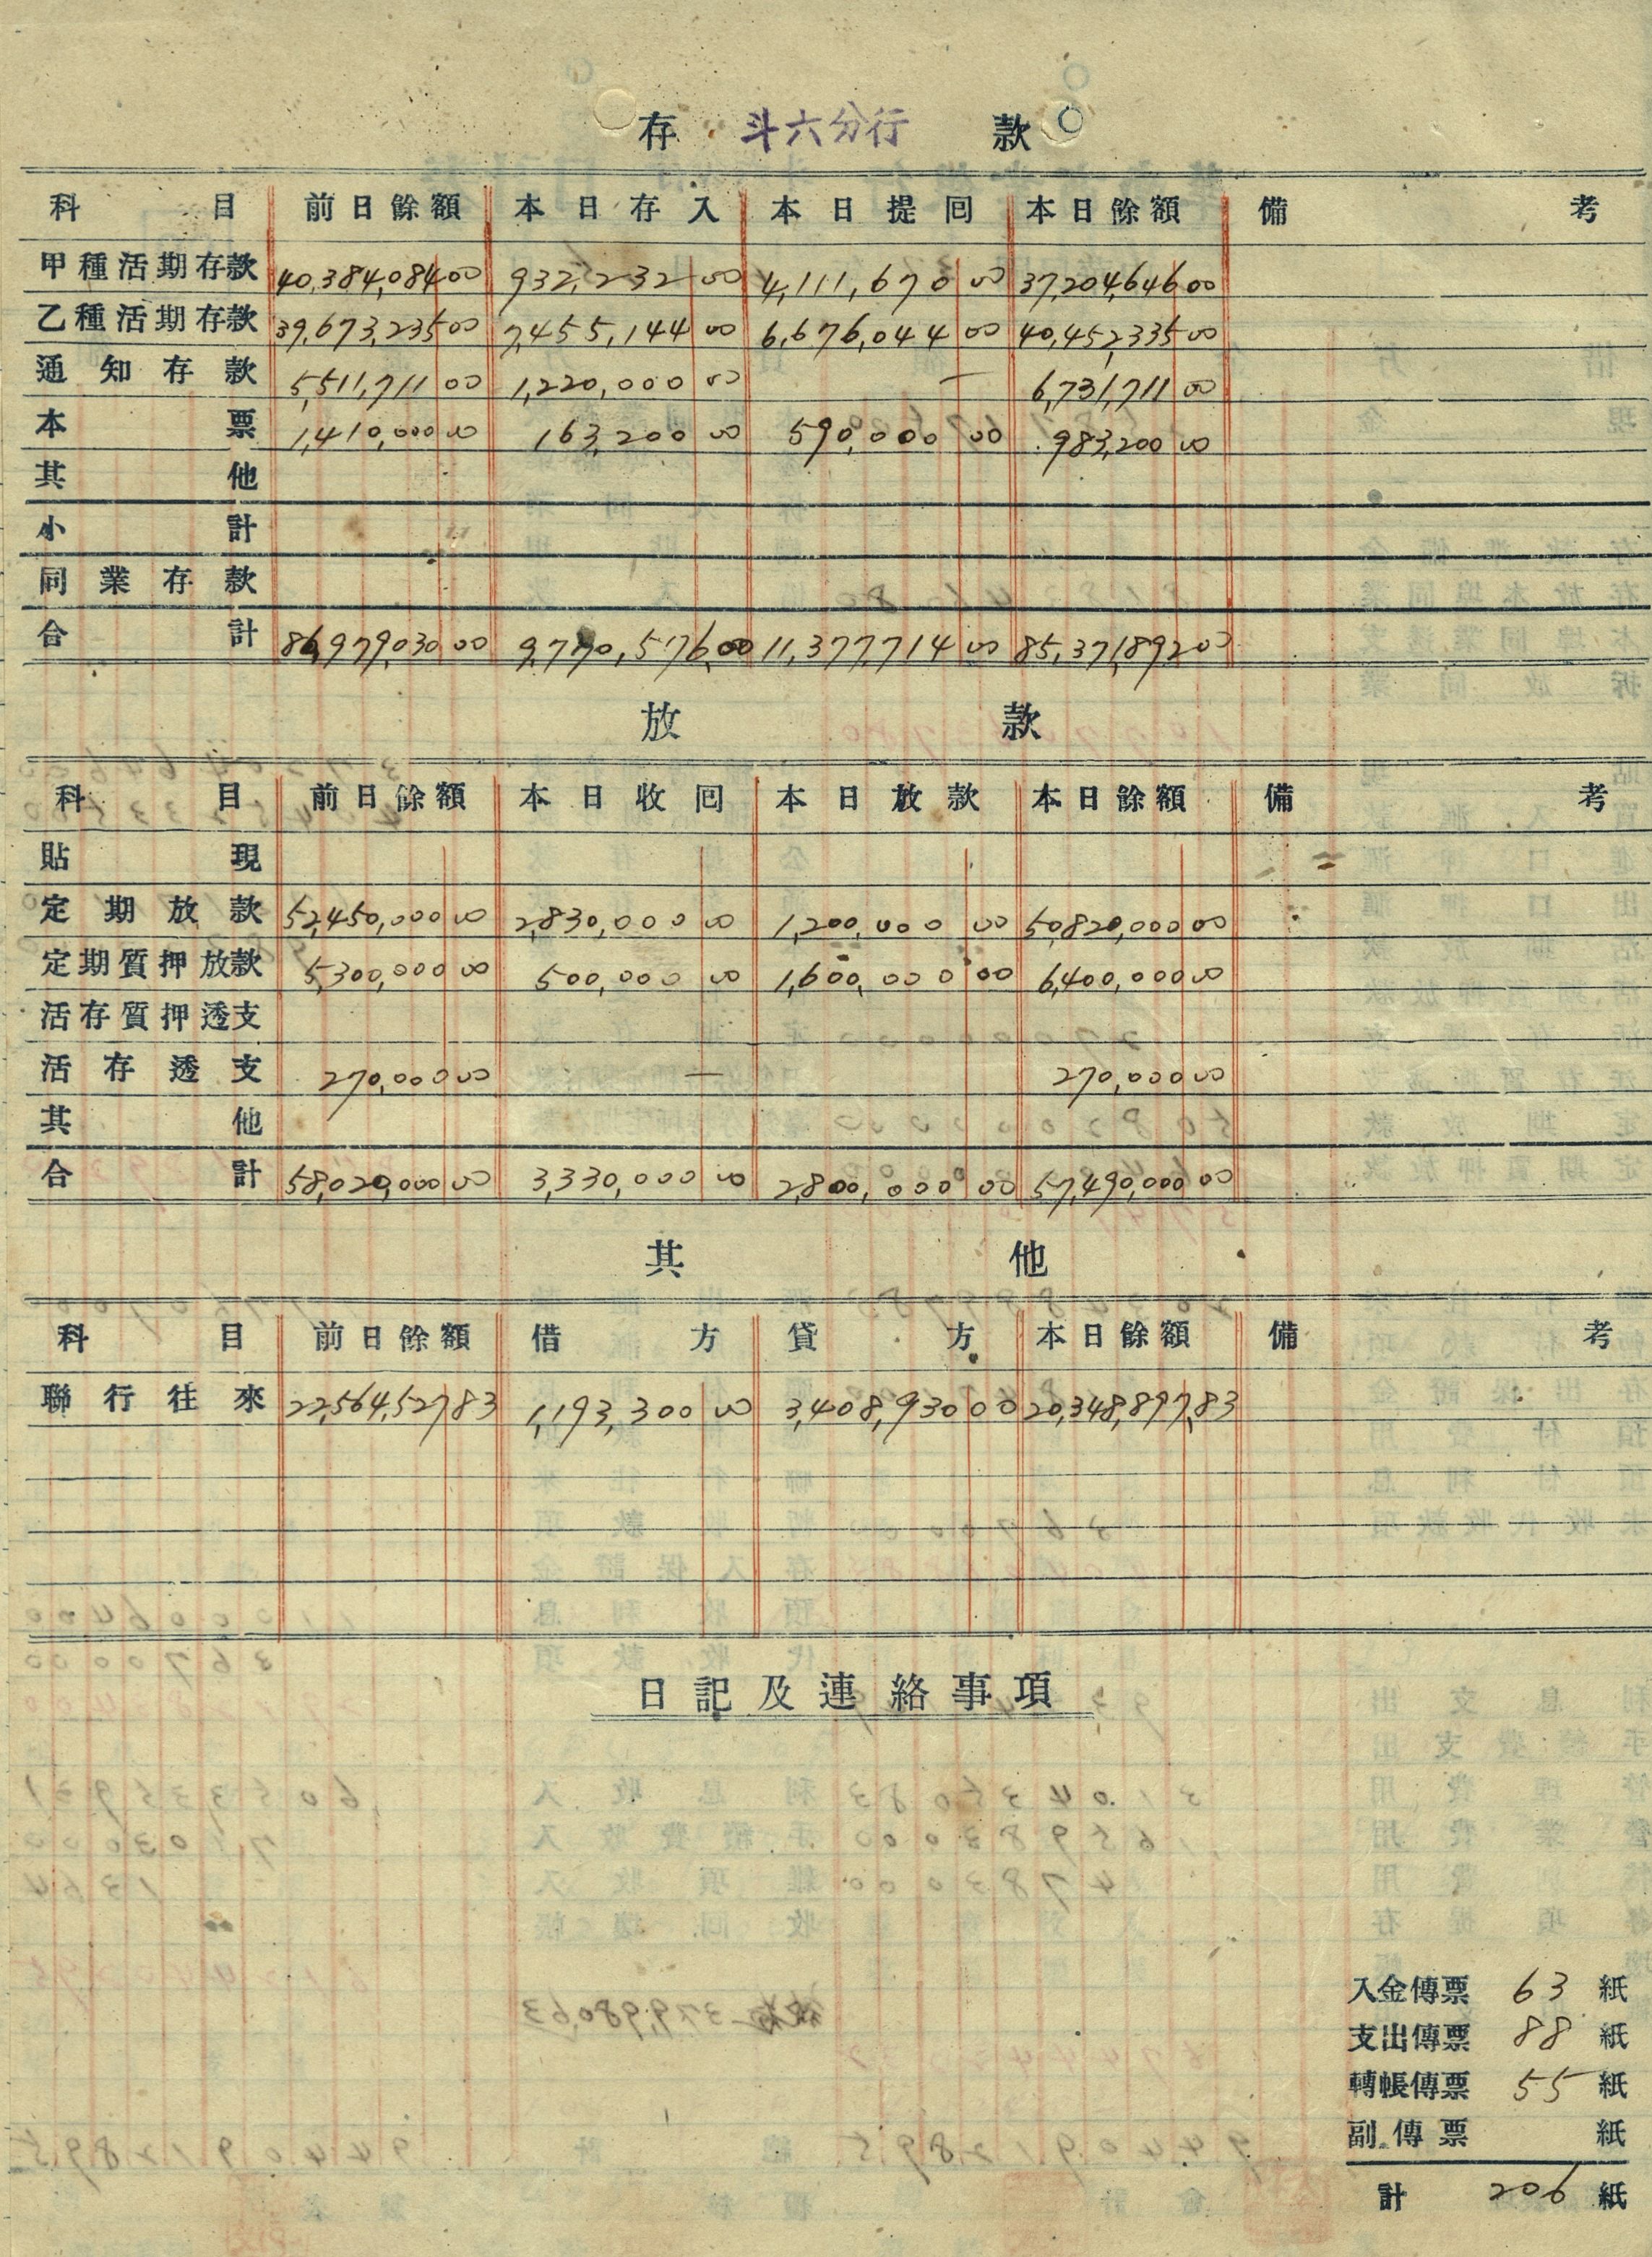 存 斗六分行 款
科目 前日餘額 本日存入 本日提囘 本日餘額 備考
甲種活期存款 40,384,084 00 932,232 00 4,111,670 00 37,204,646 00
乙種活期存款 39,673,235 00 7,455,144 00 6,676,044 00 40,452,335 00
通知存款 5,511,711 00 1,220,000 00 — 6,731,711 00
本票 1,410,000 00 163,200 00 590,000 00 983,200 00
其他
小計
同業存款
合計 86,979,030 00 9,770,576 00 11,377,714 00 85,371,892 00
放款
科目 前日餘額 本日收囘 本日放款 本日餘額 備考
貼現
定期放款 52,450,000 00 2,830,000 00 1,200,000 00 50,820,000 00
定期質押放款 5,300,000 00 500,000 00 1,600,000 00 6,400,000 00
活存質押透支
活存透支 270,000 00 — 270,000 00
其他
合計 58,020,000 00 3,330,000 00 2,800,000 00 57,490,000 00
其他
科目 前日餘額 借方 貸方 本日餘額 備考
聯行往來 22,564,527 83 1,193,300 00 3,408,930 00 20,348,897.83
日記及連絡事項
入金傳票 63 紙
支出傳票 88 紙
轉帳傳票 55 紙
副傳票 紙
計 206 紙